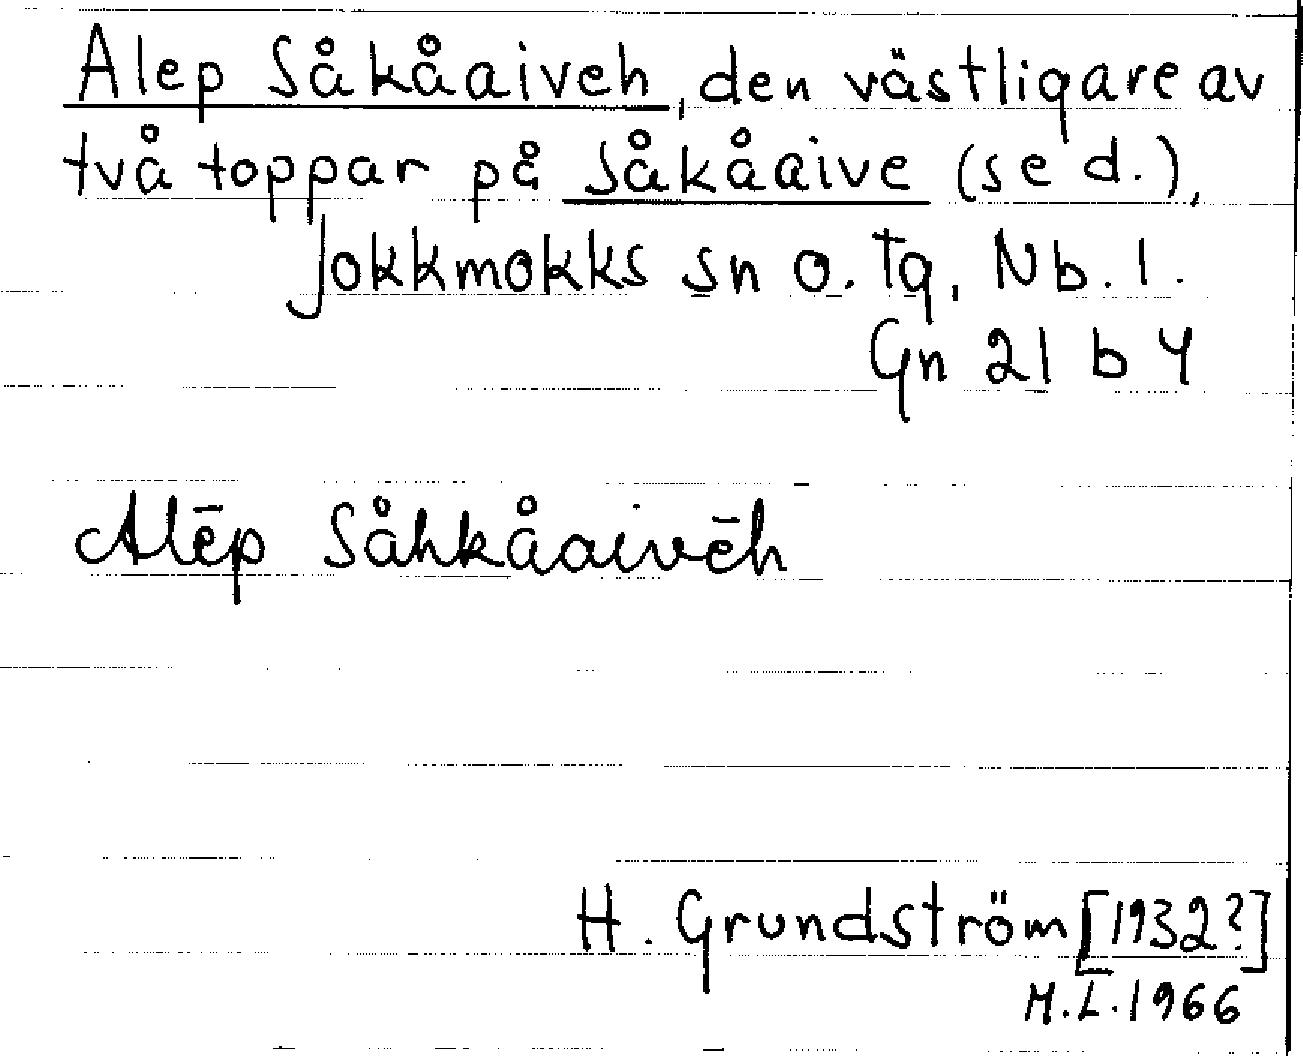 Alep Såkåaiveh, den västligare av
två toppar på Såkåaive (se d.),
Jokkmokks sn o. tg, Nb. l.
Gn 21 b 4
Alēp Såhkåaivēh
H. Grundström [1932?]
M.I. 1966